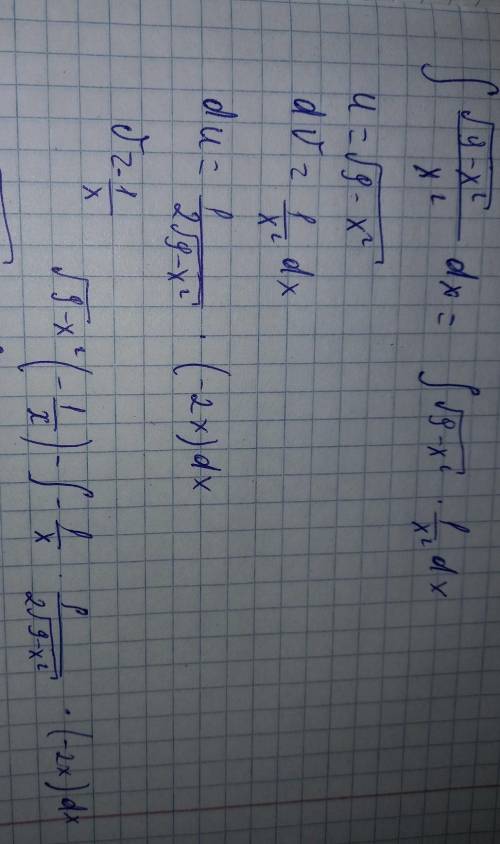 ∫ √(9-x²)/x² dx = ∫ √(9-x²) · 1/x² dx
u = √(9-x²)
dv = 1/x² dx
du = 1/(2√(9-x²)) · (-2x) dx
v = -1/x
√(9-x²) (-1/x) - ∫ -1/x · 1/(2√(9-x²)) · (-2x) dx